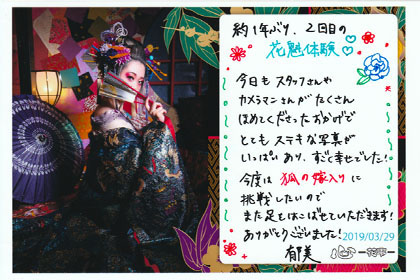 約1年ぶり、2回目の
花魁体験♡
今日も スタッフさんや
カメラマンさんが たくさん
ほめてくださったおかげで
とても ステキな写真が
いっぱい あり、すごく幸せでした!
今度は 狐の嫁入りに
挑戦したいので
また足をはこばせていただきます!
ありがとうございました!
2019/03/29
郁美